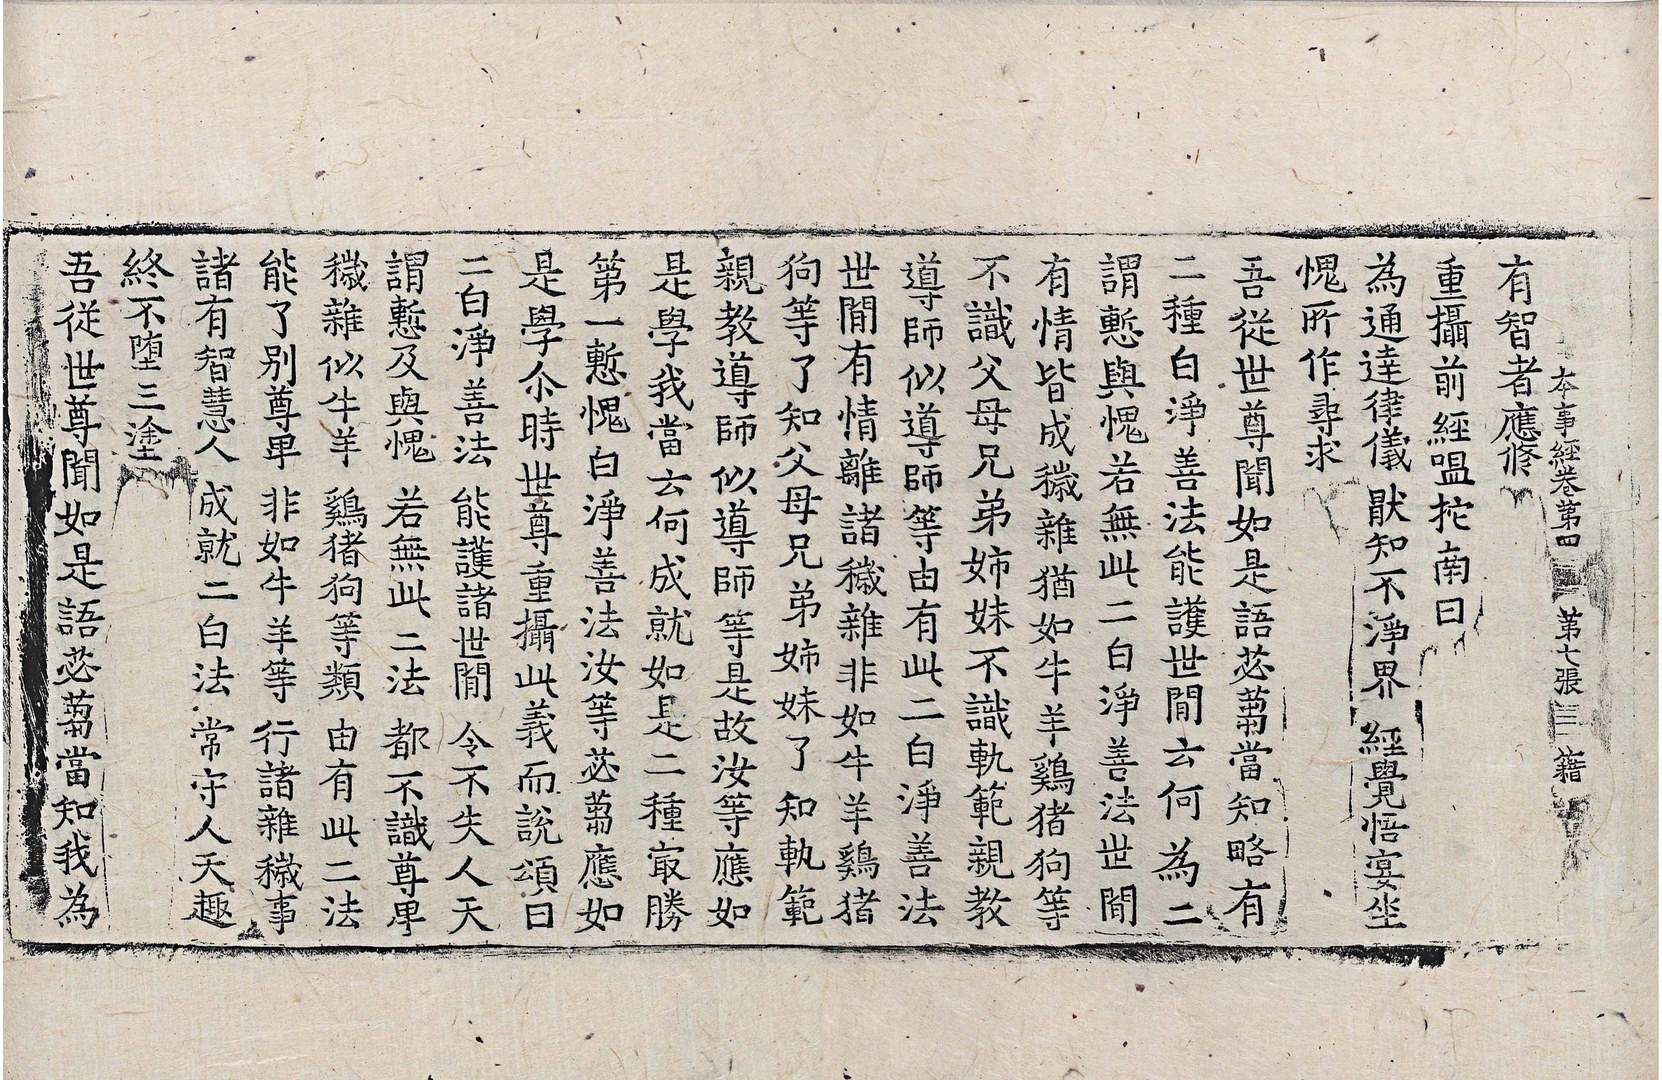 本事經卷第四 第七張 籍
有智者應修
重攝前經嗢拕南曰
為通達律儀 猒知不淨界 經覺悟宴坐
愧所作尋求
吾從世尊聞如是語苾蒭當知略有
二種白淨善法能護世間云何為二
謂慙與愧若無此二白淨善法世間
有情皆成穢雜猶如牛羊鷄猪狗等
不識父母兄弟姉妹不識軌範親教
導師似導師等由有此二白淨善法
世間有情離諸穢雜非如牛羊鷄猪
狗等了知父母兄弟姉妹了知軌範
親教導師似導師等是故汝等應如
是學我當云何成就如是二種㝡勝
第一慙愧白淨善法汝等苾蒭應如
是學尒時世尊重攝此義而說頌曰
二白淨善法 能護諸世間 令不失人天
謂慙及與愧 若無此二法 都不識尊卑
穢雜似牛羊 鷄猪狗等類 由有此二法
能了别尊卑 非如牛羊等 行諸雜穢事
諸有智慧人 成就二白法 常守人天趣
終不墮三塗
吾從世尊聞如是語苾蒭當知我為